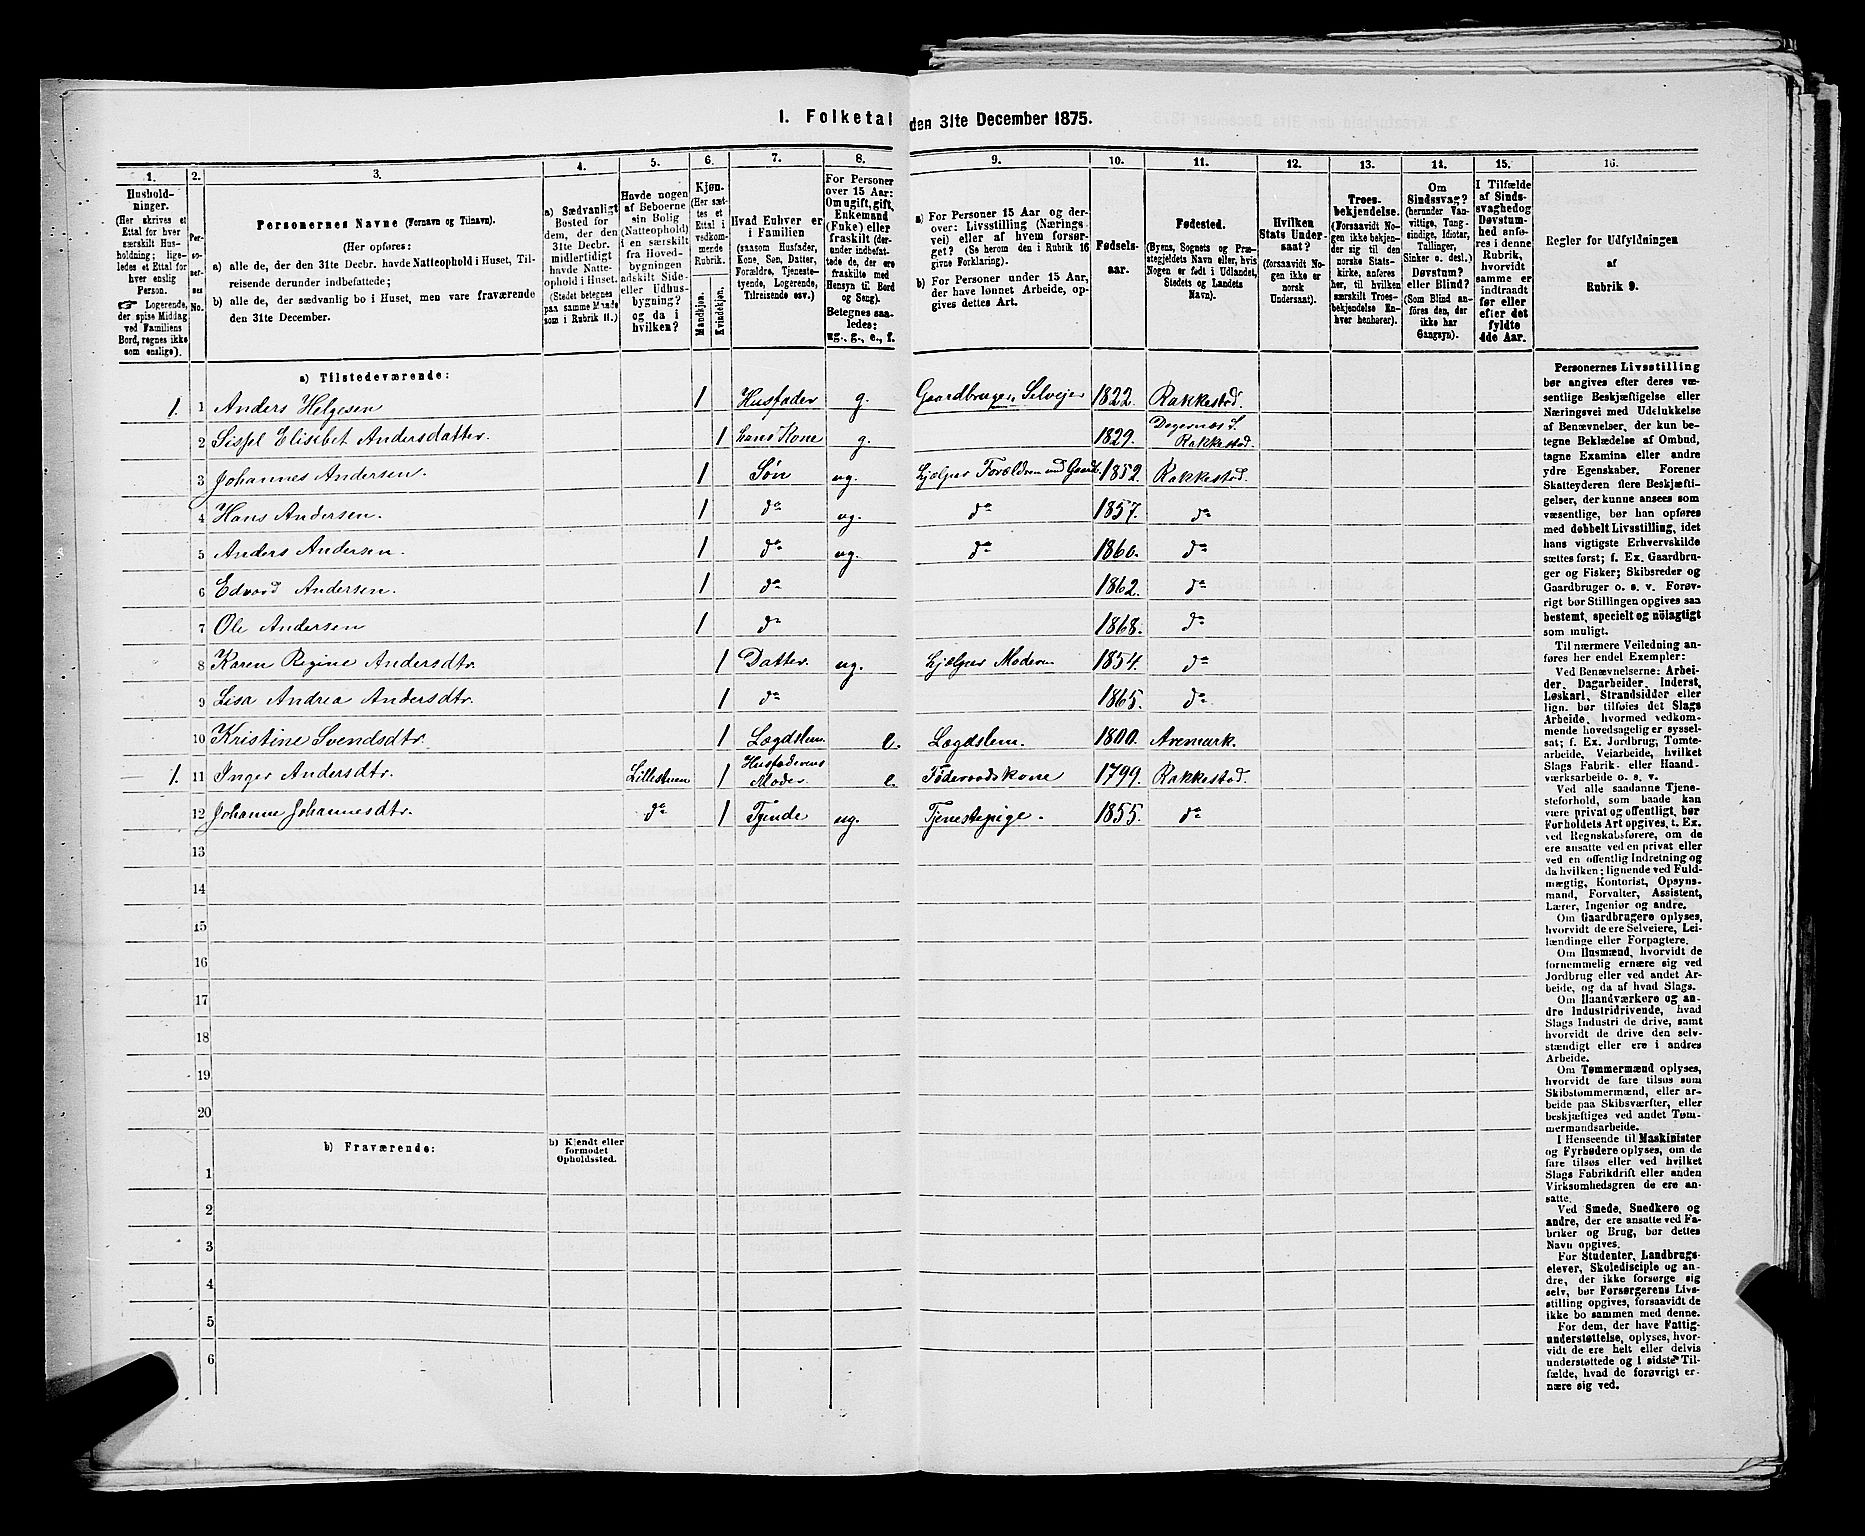 1. Folketal den 31te December 1875.
1.
2.
3.
4.
5.
6.
7.
8.
9.
10.
11.
12.
13.
14.
15.
16.
Hushold-
ninger.
(Her skrives et
Ettal for hver
særskilt Hus-
holdning; lige-
ledes et Ettal for
hver enslig
Person.
☞ Logerende,
der spise Middag
ved Familiens
Bord, regnes ikke
som enslige).
Per-
so-
ner-
nes
No.
Personernes Navne (Fornavn og Tilnavn).
(Her opføres:
a) alle de, der den 31te Decbr. havde Natteophold i Huset, Til-
reisende derunder indbefattede;
b) alle de, der sædvanlig bo i Huset, men vare fraværende
den 31te December.
a) Sædvanligt
Bosted for
dem, der den
31te Decbr.
midlertidigt
havde Natte-
ophold i Huset.
(Stedet betegnes
paa samme Maade
som i Rubrik 11.)
Havde nogen
af Beboerne
sin Bolig
(Natteophold)
i en særskilt
fra Hoved-
bygningen
adskilt Side-
eller Udhus-
bygning?
og da i
hvilken?
Kjøn.
(Her sæt-
tes et
Ettal i
vedkom-
merde
Rubrik.
Mandkjøn.
Kvindekjøn.
Hvad Enhver er
i Familien
(saasom Husfader,
Kone, Søn, Datter,
Forældre, Tjeneste-
tyende, Logerende,
Tilreisende osv.)
For Personer
over 15 Aar:
Om ugift, gift,
Enkemand
(Enke) eller
fraskilt (der-
under indbefat-
tede de, der ere
fraskilte med
Hensyn til Bord
og Seng).
Betegnes saa-
ledes:
ug., g., e., f.
a) For Personer 15 Aar og der-
over: Livsstilling (Nærings-
vei) eller af hvem forsør-
get? (Se herom den i Rubrik 16
givne Forklaring).
b) For Personer under 15 Aar,
der have lønnet Arbeide, op-
gives dettes Art.
Fødsels-
aar.
Fødested.
(Byens, Sognets og Præ-
stegjeldets Navn eller, hvis
Nogen er født i Udlandet,
Stedets og Landets
Navn).
Hvilken
Stats Under-
saat?
(forsaavidt No-
gen ikke er
norsk
Undersaat).
Troes-
bekjendelse.
(Forsaavidt No-
gen ikke bekjen-
der sig til den
norske Stats-
kirke, anføres
her, til hvilken
særskilt Troes-
bekjendelse En-
hver henhører).
Om
Sindssvag?
(herunder Van-
vittige, Tung-
sindige, Idioter,
Tullinger,
Sinker o. desl.)
Døvstum?
eller Blind?
(Som Blind an-
føres den, der
ikke har
Gangsyn).
I Tilfælde
af Sinds-
svaghed og
Døvstum-
hed anfø-
res i denne
Rubrik,
hvorvidt
samme er
indtraadt
før eller
efter det
fyldte
4de Aar.
Regler for Udfyldningen
af
Rubrik 9.
a) Tilstedeværende:
1. 1 Anders Helgesen 1 Husfader g. Gaardbruger, Selveier 1822. Rakkestad.
2 Sissel Elisibet Andersdatter. 1 hans Kone g. 1829. Degernæs S. Rakkestad.
3 Johannes Andersen. 1 Søn ug. hjælper Forældrene med Gaardb. 1852. Rakkestad.
4 Hans Andersen. 1 do ug. do 1857. do
5 Anders Andersen. 1 do ug. do 1860. do
6 Edvard Andersen. 1 do 1862. do
7 Ole Andersen 1 do 1868. do
8 Karen Regine Andersdtr. 1 Datter. ug. hjælper Moderen 1854. do
9 Lisa Andrea Andersdtr. 1 do 1865. do
10 Kristine Svendsdtr. 1 Lægdslem. e. Lægdslem. 1800. Aremark.
1. 11 Inger Andersdtr. Lillestuen 1 Husfaderens Moder. e. Føderaadskone 1799. Rakkestad.
12 Johanne Johannesdtr. do 1 Tyende ug. Tjenestepige. 1855. do
13
14
15
16
17
18
19
20
b) Fraværende:
b) Kjendt eller
formodet
Opholdssted.
1
2
3
4
5
6
Personernes Livsstilling
bør angives efter deres væ-
sentlige Beskjæftigelse eller
Næringsvei med Udelukkelse
af Benævnelser, der kun be-
tegne Beklædelse af Ombud,
tagne Examina eller andre
ydre Egenskaber. Forener
Skatteyderen flere Beskjæfti-
gelser, der kunne ansees som
væsentlige, bør han opføres
med dobbelt Livsstilling, idet
hans vigtigste Erhvervskilde
sættes først; f. Ex. Gaardbru-
ger og Fisker; Skibsreder og
Gaardbruger o. s. v. Forøv-
rigt bør Stillingen opgives saa
bestemt, specielt og nöiagtigt
som muligt.
Til nærmere Veiledning an-
føres her endel Exempler:
Ved Benævnelserne: Arbei-
der, Dagarbeider, Inderst,
Løskarl, Strandsidder eller
lign. bør tilføies det Slags
Arbeide, hvormed vedkom-
mende hovedsagelig er syssel-
sat; f. Ex. Jordbrug, Tomte-
arbeide, Veiarbeide, hvilket
Slags Fabrik- eller Haand-
værksarbeide o. s. v.
Ved alle saadanne Tjene-
steforhold, som baade kan
være privat og offentligt, bør
Forholdets Art opgives, t. Ex.
ved Regnskabsførere, om de
ere ansatte ved en privat eller
ved en offentlig Indretning og
da hvilken; lignende ved Fuld-
mægtig, Kontorist, Opsyns-
mand, Forvalter, Assistent,
Lærer, Ingeniør og andre.
Om Gaardbrugere oplyses,
hvorvidt de ere Selveiere, Lei-
lændinge eller Forpagtere.
Om Husmænd, hvorvidt de
fornemmelig ernære sig ved
Jordbrug eller ved andet Ar-
beide, og da af hvad Slags.
Om Haandværkere og an-
dre Industridrivende, hvad
Slags Industri de drive, samt
hvorvidt de drive den selv-
stændigt eller ere i andres
Arbeide.
Om Tømmermænd oplyses,
hvorvidt de fare tilsøs som
Skibstømmermænd, eller ar-
beide paa Skibsværfter, eller
beskjæftiges ved andet Tøm-
mermandsarbeide.
I Henseende til Maskinister
og Fyrbødere oplyses, om de
fare tilsøs eller ved hvilket
Slags Fabrikdrift eller anden
Virksomhedsgren de ere an-
satte.
Ved Smede, Snedkere og
andre, der ere ansatte ved Fa-
briker og Brug, bør dettes
Navn opgives.
For Studenter, Landbrugs-
elever, Skoledisciple og an-
dre, der ikke forsørge sig
selv, bør Forsørgerens Livs-
stilling opgives, forsaavidt de
ikke bo sammen med denne.
For dem, der have Fattig-
understøttelse, oplyses, hvor-
vidt de ere helt eller delvis
understøttede og i sidste Til-
fælde, hvad de forøvrigt er-
nære sig ved.